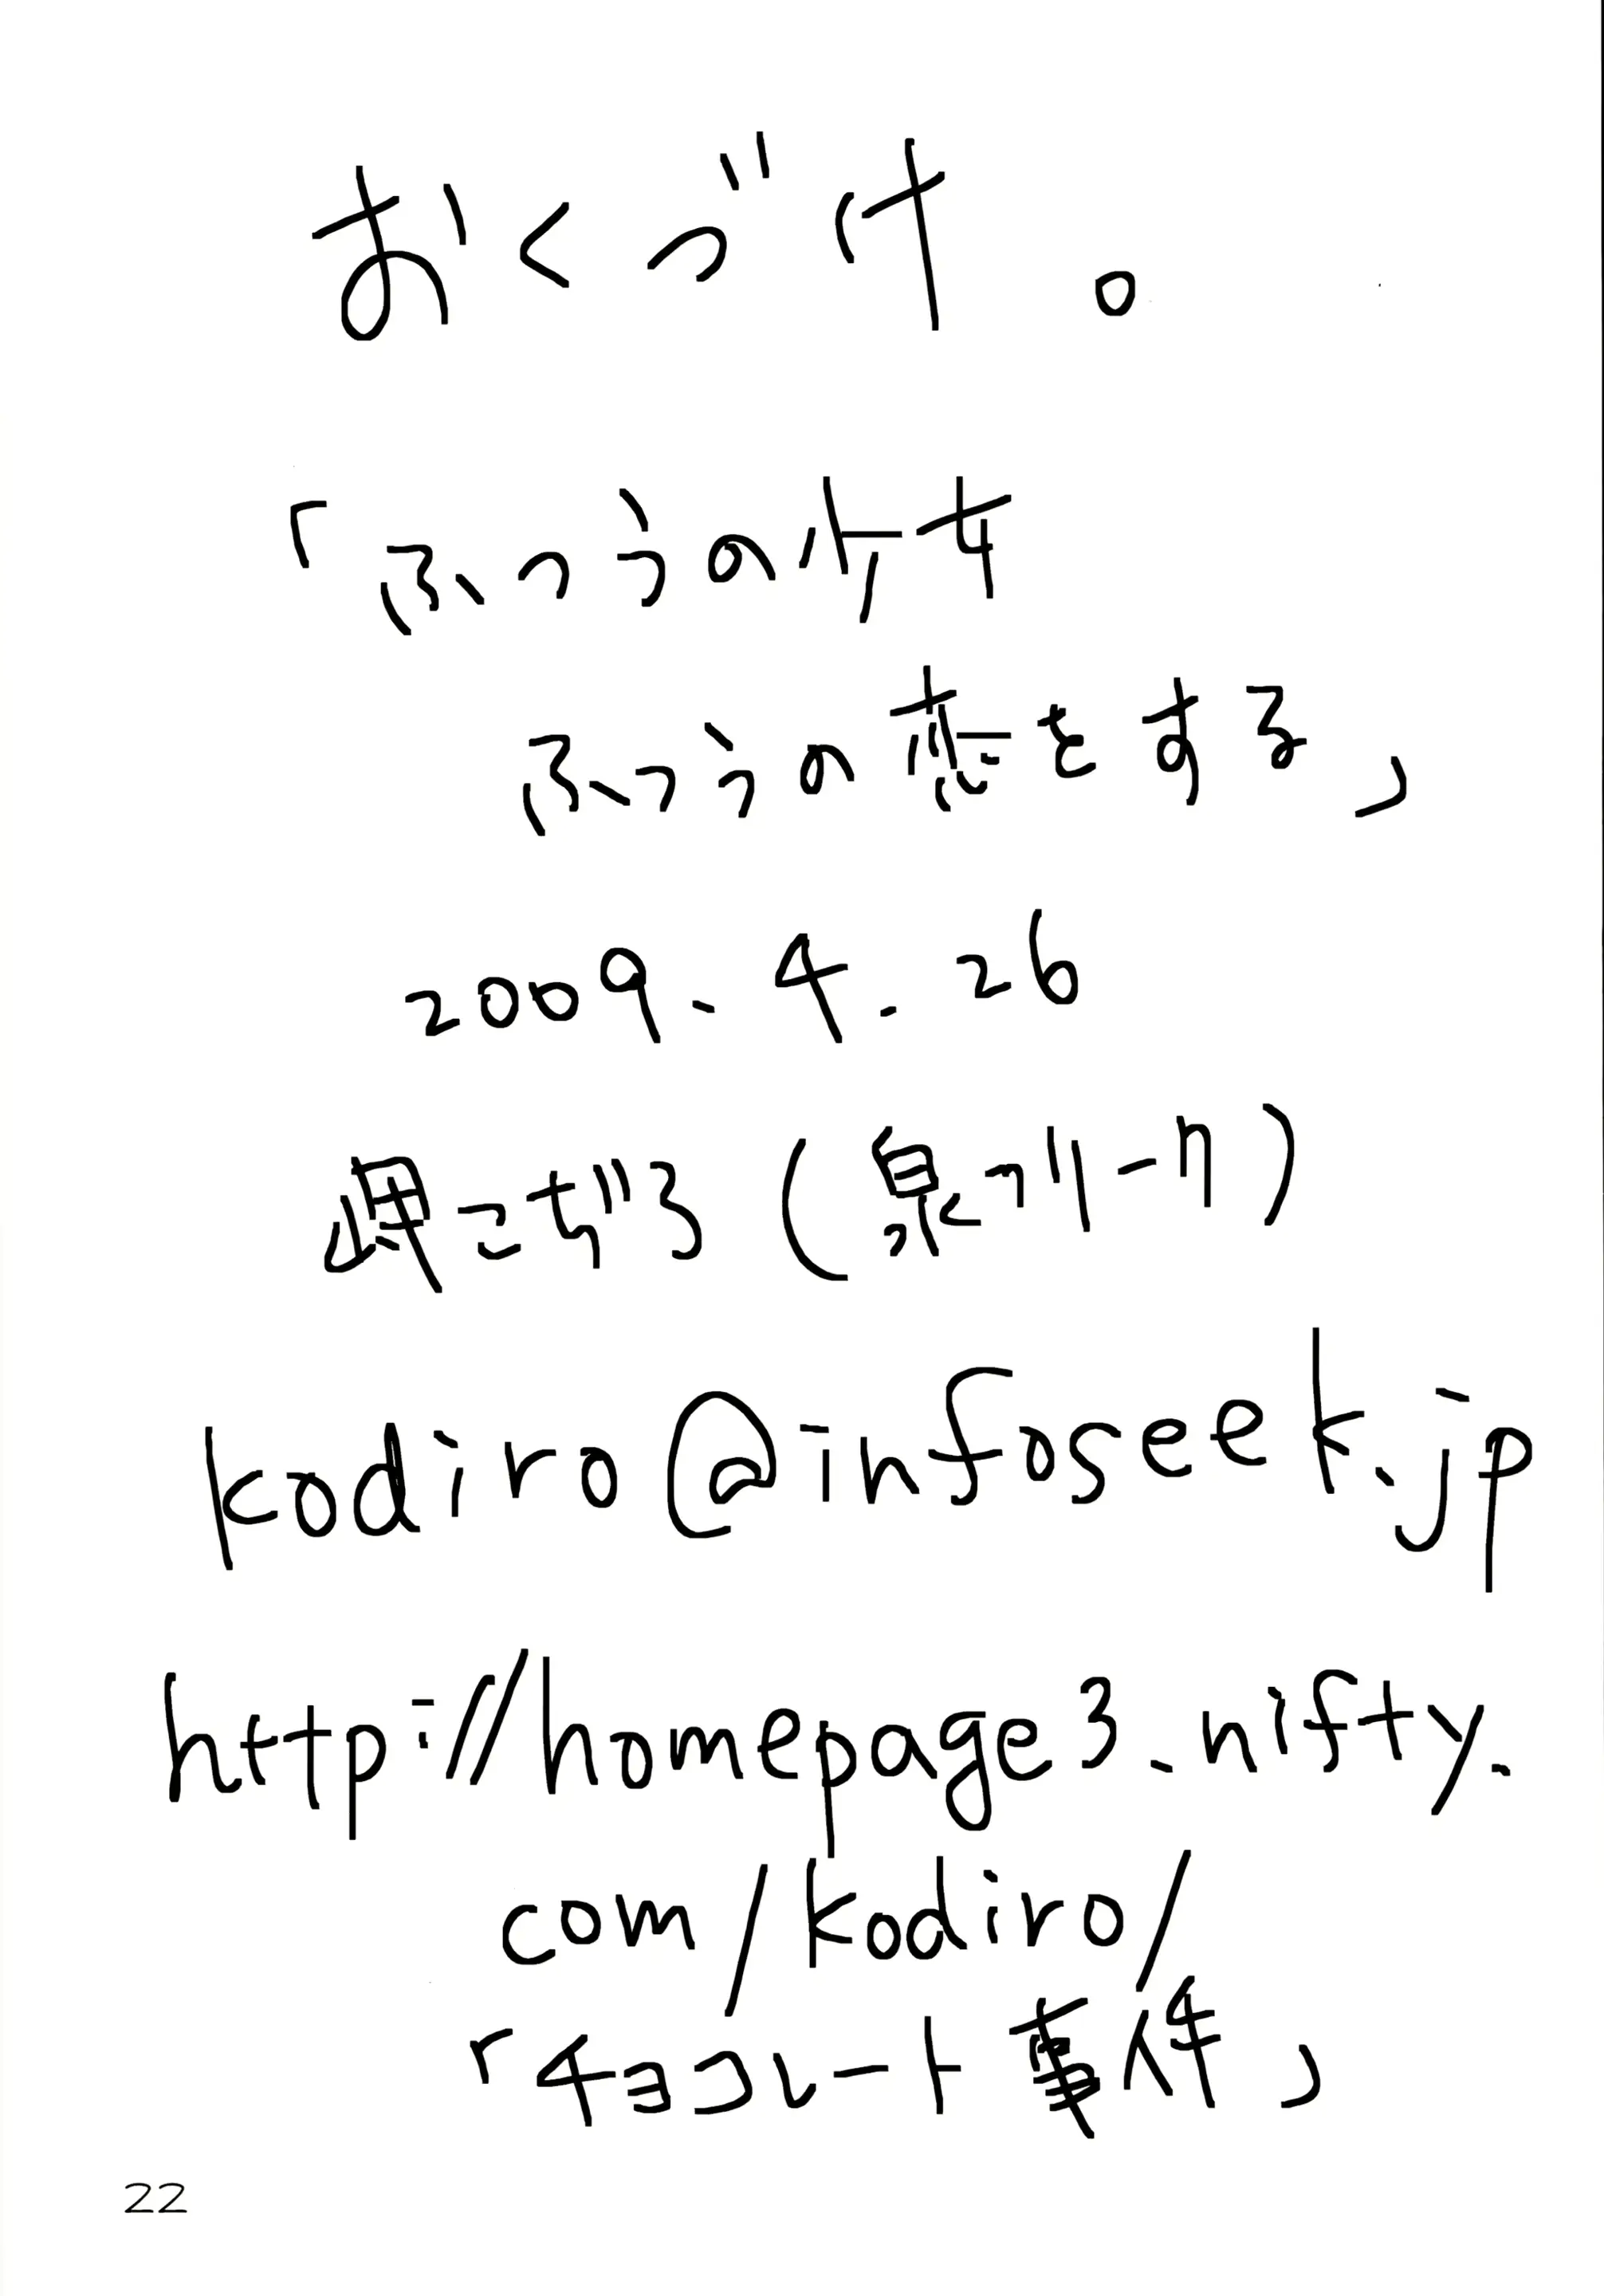 おくづけ。
「ふつうの
ふつうの恋をする」
2009.4.26
こぢろ(泉
kodiro@infoseek.jp
http://homepage3.nifty.
com/kodiro/
「チョコレート事件」
22